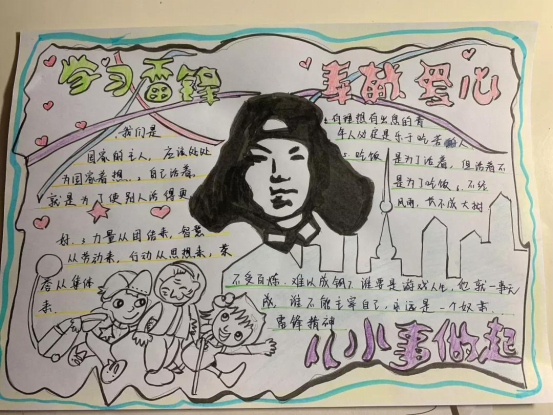 学习雷锋
奉献 爱心
我们是
国家的主人，应该处处
为国家着想。自己活着，
就是为了使别人活得更
好。力量从团结来，智慧
从劳动来，行动从思想来，荣
誉从集体
来
有理想有出息的青
年人必定是乐于吃苦的人
吃饭是为了活着，但活着不
是为了吃饭。不经
风雨，长不成大树
不受百炼，难以成钢。谁若是游戏人生，他就一事无
成，谁不能主宰自己，永远是一个奴隶。
雷锋精神
从小事做起